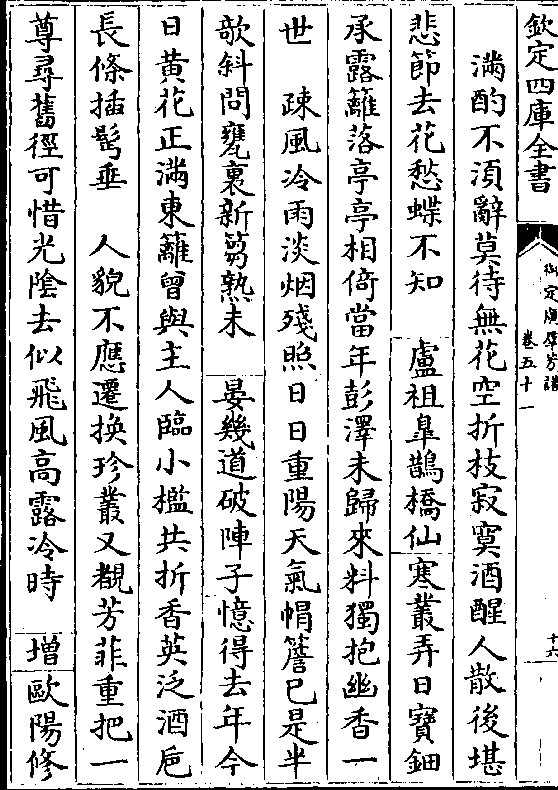 欽定四庫全書
御定廣羣芳譜
卷五十一
十六
滿酌不須辭莫待無花空折枝寂寞酒醒人散後堪
悲節去花愁蝶不知　盧祖臯鵲橋仙寒叢弄日寶鈿
承露籬落亭亭相倚當年彭澤未歸來料獨抱幽香一
世　疎風冷雨淡烟殘照日日重陽天氣帽簷已是半
欹斜問甕裏新蒭熟未　晏幾道破陣子憶得去年今
日黃花正滿東籬曾與主人臨小檻共折香英泛酒巵
長條插鬂垂　人貌不應遷換珍叢又覩芳菲重把一
尊尋舊徑可惜光陰去似飛風高露冷時　增歐陽修